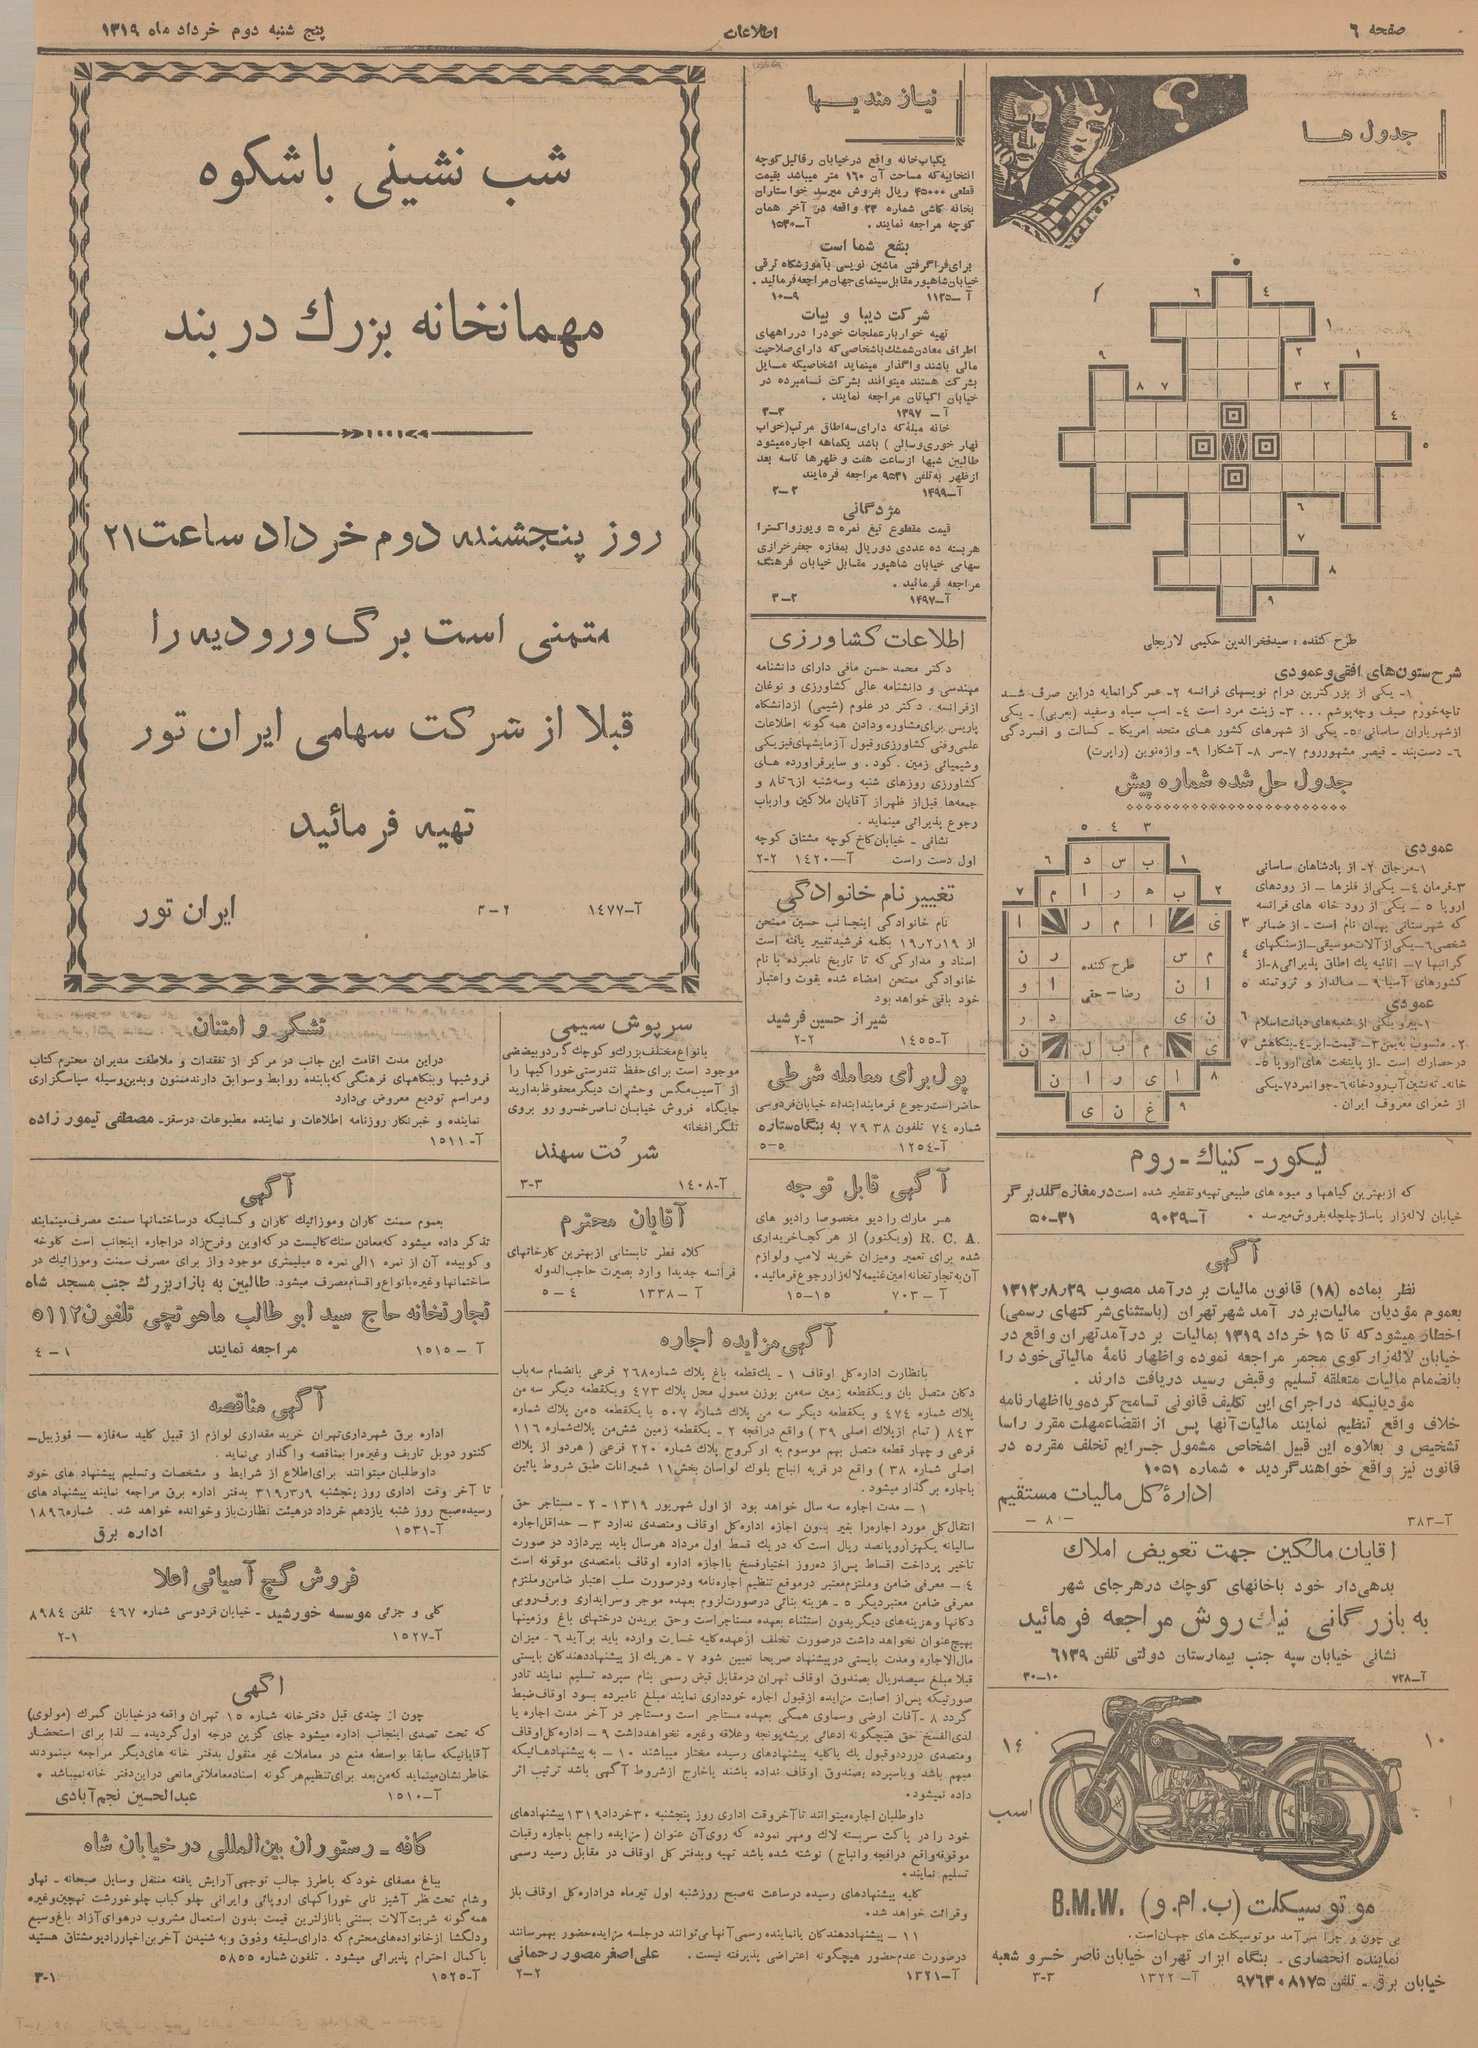 صفحه ٦
اطلاعات
پنج شنبه دوم خرداد ماه ۱۳۱۹
جدول ها
؟
طرح کننده : سیدفخرالدین حکیمی لاریجانی
شرح ستون‌های افقی و عمودی
۱- یکی از بزرگترین درام نویسهای فرانسه ۲- عمر گرانمایه دراین صرف شد
تاچه‌خورم صیف وچه‌پوشم . . . ۳- زینت مرد است ٤- اسب سیاه وسفید (بعربی) - یکی
ازشهریاران ساسانی ٥- یکی از شهرهای کشور های متحد امریکا - کسالت و افسردگی
٦- دست‌بند - قیصر مشهورروم ۷-سر ۸- آشکارا ۹- واژه‌نوین (راپرت)
جدول حل شده شماره پیش
عمودی
۱-مرجان ۲- از پادشاهان ساسانی
۳-فرمان ٤- یکی‌از فلزها - از رودهای
اروپا ٥ - یکی از رود خانه های فرانسه
که شهرستانی بهمان نام است - از ضمائر
شخصی٦-یکی‌ازآلات‌موسیقی-ازسنگهای
گرانبها ۷- اثاثیه یك اطاق پذیرائی۸-از
کشورهای آسیا ۹- مالدار و ثروتمند
عمودی
۱-پیرو یکی از شعبه‌های دیانت‌اسلام
۲- منسوب به‌یمن ۳- قیمت-ابر-٤-بنگاهش
درحصارك است - از پایتخت های اروپا ٥-
خانه- ته‌نشین آب‌رودخانه٦-جوانمرد۷-یکی
از شعرای معروف ایران .
طرح کننده
رضا - حقی
لیکور- کنیاك - روم
که ازبهترین گیاهها و میوه های طبیعی‌تهیه‌وتقطیر شده است درمغازه گلدبرگر
خیابان لاله‌زار پاساژچلچله‌بفروش‌میرسد . آ-۹۰۳۹ ۳۱-٥۰
آگهی
نظر بماده (۱۸) قانون مالیات بردرآمد مصوب ۱۳۱۲ر۸ر۲۹
بعموم مؤدیان مالیات‌بردر آمد شهرتهران (باستثنای‌شرکتهای رسمی)
اخطار میشودکه تا ۱٥ خرداد ۱۳۱۹ بمالیات بر درآمدتهران واقع در
خیابان لاله‌زارکوی مجمر مراجعه نموده واظهار نامهٔ مالیاتی‌خود را
بانضمام مالیات متعلقه تسلیم وقبض رسید دریافت دارند .
مؤدیانیکه دراجرای این تکلیف قانونی تسامح کرده‌ویااظهارنامه
خلاف واقع تنظیم نمایند مالیات‌آنها پس از انقضاءمهلت مقرر راسا
تشخیص و بعلاوه این قبیل اشخاص مشمول جرایم تخلف مقرره در
قانون نیز واقع خواهندگردید . شماره ۱۰٥۱
ادارهٔ کل مالیات مستقیم
آ-۳۸۳ - ۸۰ -
اقایان مالکین جهت تعویض املاك
بدهی‌دار خود باخانهای کوچك درهرجای شهر
به بازرگانی نیك روش مراجعه فرمائید
نشانی خیابان سپه جنب بیمارستان دولتی تلفن ٦۱۳۹
آ-۷۲۸ ۱۰-۳۰
موتوسیکلت (ب . ام . و) B.M.W.
بی چون و چرا سرآمد موتوسیکلت های جهان‌است .
نماینده انحصاری . بنگاه ابزار تهران خیابان ناصر خسرو شعبه
خیابان برق - تلفن ۸۱۷٥ و ۹۷٦۳ آ-۱۳۲۲ ۳-۳
نیازمندیها
یکباب‌خانه واقع درخیابان رفائیل‌کوچه
انتخابیه‌که مساحت آن ۱٦۰ متر میباشد بقیمت
قطعی ۴٥۰۰۰ ریال بفروش میرسد خواستاران
بخانه کاشی شماره ۲۳ واقعه در آخر همان
کوچه مراجعه نمایند . آ-۱٥۳۰
بنفع شما است
برای‌فراگرفتن ماشین نویسی بآموزشگاه ترقی
خیابان‌شاهپور مقابل‌سینمای‌جهان‌مراجعه‌فرمائید .
آ-۱۱۲٥ ۹-۱۰
شرکت دیبا و بیات
تهیه خواربارعملجات خودرا درراههای
اطراف معادن‌شمشك‌باشخاصی‌که دارای‌صلاحیت
مالی باشند واگذار مینماید اشخاصیکه مایل
بشرکت هستند میتوانند بشرکت نامبرده در
خیابان اکباتان مراجعه نمایند .
آ- ۱۳۹۷ ۳-۳
خانه مبله‌که دارای‌سه‌اطاق مرتب(خواب
نهار خوری‌وسالن ) باشد یکماهه اجاره‌میشود
طالبین شبها ازساعت هفت و ظهرها تاسه بعد
ازظهر به‌تلفن ۹٥۳۱ مراجعه فرمایند
آ-۱۴۹۹ ۲-۲
مژدگانی
قیمت مقطوع تیغ نمره ٥ ویوزواکسترا
هربسته ده عددی دوریال بمغازه جعفرخرازی
سهامی خیابان شاهپور مقابل خیابان فرهنگ
مراجعه فرمائید .
آ-۱۴۹۷ ۲-۳
اطلاعات کشاورزی
دکتر محمد حسن مافی دارای دانشنامه
مهندسی و دانشنامه عالی کشاورزی و نوغان
ازفرانسه . دکتر در علوم (شیمی) ازدانشگاه
پاریس برای‌مشاوره ودادن همه‌گونه اطلاعات
علمی‌وفنی کشاورزی‌وقبول آزمایشهای‌فیزیکی
وشیمیائی زمین . کود . و سایرفراورده های
کشاورزی روزهای شنبه وسه‌شنبه از٦تا۸ و
جمعه‌ها قبل‌از ظهراز آقایان ملاکین وارباب
رجوع پذیرائی مینماید .
نشانی - خیابان‌کاخ‌کوچه مشتاق کوچه
اول دست راست آ-۱٤۲۰ ۲-۲
تغییر نام خانوادگی
نام خانوادگی اینجانب حسین ممتحن
از ۱۹ر۲ر۱۹ بکلمه فرشیدتغییر یافته است
اسناد و مدارکی‌که تا تاریخ نامبرده با نام
خانوادگی ممتحن امضاء شده بقوت واعتبار
خود باقی خواهد بود
شیراز حسین فرشید
آ-۱٤٥٥ ۲-۲
پول برای معامله شرطی
حاضراست‌رجوع فرمایندابتداء خیابان‌فردوسی
شماره ۷٤ تلفون ۳۸ ۷۹ به بنگاه ستاره
آ-۱۲٥٤ ٥-٥
آگهی قابل توجه
هر مارك رادیو مخصوصا رادیو های
R. C. A. (ویکتور) از هر کجاخریداری
شده برای تعمیر ومیزان خرید لامپ ولوازم
آن‌به تجارتخانه‌امین‌غنیمه‌لاله‌زاررجوع‌فرمائید.
آ - ۷۰۳ ۱٥-۱٥
شب نشینی باشکوه
مهمانخانه بزرك دربند
روز پنجشنبه دوم خرداد ساعت ۲۱
متمنی است برگ ورودیه را
قبلا از شرکت سهامی ایران تور
تهیه فرمائید
آ-۱٤۷۷ ۲-۲ ایران تور
سرپوش سیمی
بانواع‌مختلف‌بزرك‌وکوچك گردوبیضی
موجود است برای‌حفظ تندرستی‌خوراکیها را
از آسیب‌مگس وحشرات دیگرمحفوظ‌بدارید
جایگاه فروش خیابان ناصرخسرو رو بروی
تلگرافخانه
شرکت سهند
آ-۱٤۰۸ ۳-۳
آقایان محترم
کلاه فطر تابستانی ازبهترین کارخانهای
فرانسه جدیدا وارد بصیرت حاجب‌الدوله
آ - ۱۳۳۸ ٤-٥
تشکر و امتنان
دراین مدت اقامت این جانب در مرکز از تفقدات و ملاطفت مدیران محترم‌کتاب
فروشیها وبنگاههای فرهنگی که‌بابنده روابط وسوابق دارندممنون وبدین‌وسیله سپاسگزاری
ومراسم تودیع معروض می‌دارد
نماینده و خبرنگار روزنامه اطلاعات و نماینده مطبوعات درسقز- مصطفی تیمور زاده
آ-۱٥۱۱
آگهی
بعموم سمنت کاران وموزائیك کاران و کسانیکه درساختمانها سمنت مصرف‌مینمایند
تذکر داده میشود که‌معادن سنك‌کالیست درکه‌اوین وفرح‌زاد دراجاره اینجانب است کلوخه
و کوبیده آن از نمره ۱الی نمره ٥ میلیمتری موجود واز برای مصرف سمنت وموزائیك در
ساختمانها وغیره بانواع واقسام‌مصرف میشود. طالبین به بازاربزرك جنب مسجد شاه
تجارتخانه حاج سید ابوطالب ماهوتچی تلفون ٥۱۱۲
مراجعه نمایند
آ-۱٥۱٥ ۱-٤
آگهی مناقصه
اداره برق شهرداری‌تهران خرید مقداری لوازم از قبیل کلید سه‌فازه - فوزیبل-
کنتور دوبل تاریف وغیره‌را بمناقصه واگذار می‌نماید .
داوطلبان میتوانند برای‌اطلاع از شرایط و مشخصات وتسلیم پیشنهاد های خود
تا آخر وقت اداری روز پنجشنبه ۹ر۳ر۳۱۹ بدفتر اداره برق مراجعه نمایند پیشنهاد های
رسیده‌صبح روز شنبه یازدهم خرداد درهیئت نظارت‌باز وخوانده خواهد شد. شماره۱۸۹٦
آ-۱٥۳۱ اداره برق
فروش گچ آسیائی اعلا
کلی و جزئی موسسه خورشید - خیابان فردوسی شماره ٤٦۷ تلفن ۸۹۸٤
آ-۱٥۲۷ ۱-۲
آگهی
چون از چندی قبل دفترخانه شماره ۱٥ تهران واقعه درخیابان گمرك (مولوی)
که تحت تصدی اینجانب اداره میشود جای گزین درجه اول‌گردیده - لذا برای استحضار
آقایانیکه سابقا بواسطه منع در معاملات غیر منقول بدفتر خانه های‌دیگر مراجعه مینمودند
خاطرنشان‌مینماید که‌من‌بعد برای‌تنظیم‌هرگونه اسنادمعاملاتی‌مانعی دراین‌دفتر خانه‌نمیباشد .
آ-۱٥۱۰ عبدالحسین نجم‌آبادی
کافه - رستوران بین‌المللی درخیابان شاه
بباغ مصفای خود که باطرز جالب توجهی‌آرایش یافته منتقل وسایل صبحانه - نهار
وشام تحت‌نظر آشپز نامی خوراکهای اروپائی وایرانی چلوکباب چلوخورشت تهچین‌وغیره
همه‌گونه شربت‌آلات بستنی بانازلترین قیمت بدون استعمال مشروب درهوای‌آزاد باغ‌وسیع
ودلگشا ازخانواده‌های‌محترم‌که دارای‌سلیقه وذوق و به شنیدن آخرین‌اخباررادیومشتاق هستید
باکمال احترام پذیرائی میشود . تلفون شماره ٥۸٥٥
آ-۱٥۲٥ ۱-۳
آگهی مزایده اجاره
بانظارت اداره‌کل اوقاف ۱ - یك‌قطعه باغ پلاك شماره۲٦۸ فرعی بانضمام سه‌باب
دکان متصل بان ویکقطعه زمین سه‌من بوزن معمول محل پلاك ٤۷۳ ویکقطعه دیگر سه من
پلاك شماره ٤۷٤ و یکقطعه دیگر سه من پلاك شماره ٥۰۷ با یکقطعه ٥من پلاك شماره
۸٤۳ ( تمام ازپلاك اصلی ۳۹ ) واقع درافجه ۲ - یکقطعه زمین شش‌من پلاك‌شماره ۱۱٦
فرعی و چهار قطعه متصل بهم موسوم به ارکروج پلاك شماره ۲۲۰ فرعی ( هردو از پلاك
اصلی شماره ۳۸ ) واقع در قریه انباج بلوك لواسان بخش۱۱ شمیرانات طبق شروط پائین
باجاره برگذار میشود.
۱ - مدت اجاره سه سال خواهد بود از اول شهریور ۱۳۱۹ - ۲ - مستاجر حق
انتقال‌کل مورد اجاره‌را بغیر بدون اجازه اداره‌کل اوقاف ومتصدی ندارد ۳ - حداقل‌اجاره
سالیانه یکهزاروپانصد ریال است‌که دریك قسط اول مرداد هرسال باید بپردازد در صورت
تاخیر پرداخت اقساط پس‌از ده‌روز اختیارفسخ بااجازه اداره اوقاف بامتصدی موقوفه است
٤ - معرفی ضامن وملتزم‌معتبر درموقع تنظیم اجاره‌نامه ودرصورت سلب اعتبار ضامن‌وملتزم
معرفی ضامن معتبردیگر ٥ - هزینه بنائی درصورت‌لزوم بعهده موجر وسرایداری وبرف‌روبی
دکانها وهزینه‌های دیگربدون استثناء بعهده مستاجراست وحق بریدن درختهای باغ وزمینها
بهیچ‌عنوان نخواهد داشت درصورت تخلف ازعهده‌کلیه خسارت وارده باید برآید ٦ - میزان
مال‌الاجاره ومدت بایستی درپیشنهاد صریحا تعیین شود ۷ - هریك از پیشنهاددهندگان بایستی
قبلا مبلغ سیصدریال بصندوق اوقاف تهران درمقابل قبض رسمی بنام سپرده تسلیم نمایند تادر
صورتیکه پس‌از اصابت مزایده ازقبول اجاره خودداری نمایند مبلغ نامبرده بسود اوقاف‌ضبط
گردد ۸ - آفات ارضی وسماوی همگی بعهده مستاجر است ومستاجر در آخر مدت اجاره یا
لدی‌الفسخ حق هیچگونه ادعائی بریشه‌ویونجه وعلاقه وغیره نخواهدداشت ۹ - اداره‌کل‌اوقاف
ومتصدی درردوقبول یك یاکلیه پیشنهادهای رسیده مختار میباشند ۱۰ - به پیشنهادهائیکه
مبهم باشد ویاسپرده بصندوق اوقاف نداده باشند یاخارج ازشروط آگهی باشد ترتیب اثر
داده نمیشود.
داوطلبان اجاره‌میتوانند تاآخروقت اداری روز پنجشنبه ۳۰خرداد۱۳۱۹پیشنهادهای
خود را در پاکت سربسته لاك ومهر نموده که روی‌آن عنوان ( مزایده راجع باجاره رقبات
موقوفه‌واقع درافجه وانباج ) نوشته شده باشد تهیه وبدفتر کل اوقاف در مقابل رسید رسمی
تسلیم نمایند.
کلیه پیشنهادهای رسیده درساعت نه‌صبح روزشنبه اول تیرماه دراداره‌کل اوقاف باز
وقرائت خواهد شد.
۱۱ - پیشنهاددهندگان یانماینده رسمی‌آنها می‌توانند درجلسه مزایده‌حضور بهمرسانند
درصورت عدم‌حضور هیچگونه اعتراضی پذیرفته نیست . علی‌اصغر مصور رحمانی
آ-۱۳۲۱ ۲-۲